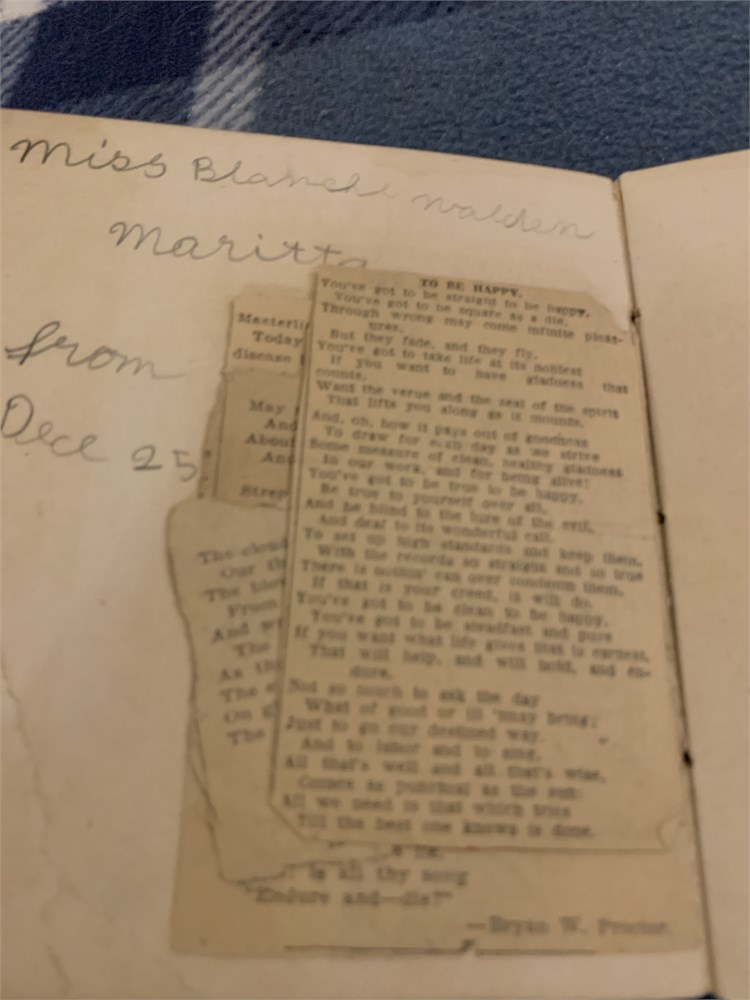 Miss Blanche Walden
Maritta
from
Dec 25
TO BE HAPPY.
You've got to be straight to be happy.
You've got to be square as a die.
Through wrong may come infinite pleas-
ures,
But they fade, and they fly.
You've got to take life at its noblest
If you want to have gladness that
counts,
Want the verve and the zeal of the spirit
That lifts you along as it mounts.
And, oh, how it pays out of goodness
To draw for each day as we strive
Some measure of clean, healthy gladness
In our work, and for being alive!
You've got to be true to be happy.
Be true to yourself over all,
And be blind to the lure of the evil,
And deaf to its wonderful call.
To set up high standards and keep them,
With the records so straight and so true
There is nothin' can ever condemn them,
If that is your creed, it will do.
You've got to be clean to be happy,
You've got to be steadfast and pure
If you want what life gives that is earnest,
That will help, and will hold, and en-
dure.
Not so much to ask the day
What of good or ill 'tmay bring;
Just to go our destined way,
And to labor and to sing.
All that's well and all that's wise,
Comes as punctual as the sun:
All we need is that which tries
Till the best one knows is done.
Masterli
Today
disease
May
And
About
And
The cloud
Our
The
From
And
The
As th
The
On
The
is all thy song
"Endure and—die?"
—Bryan W. Procter.